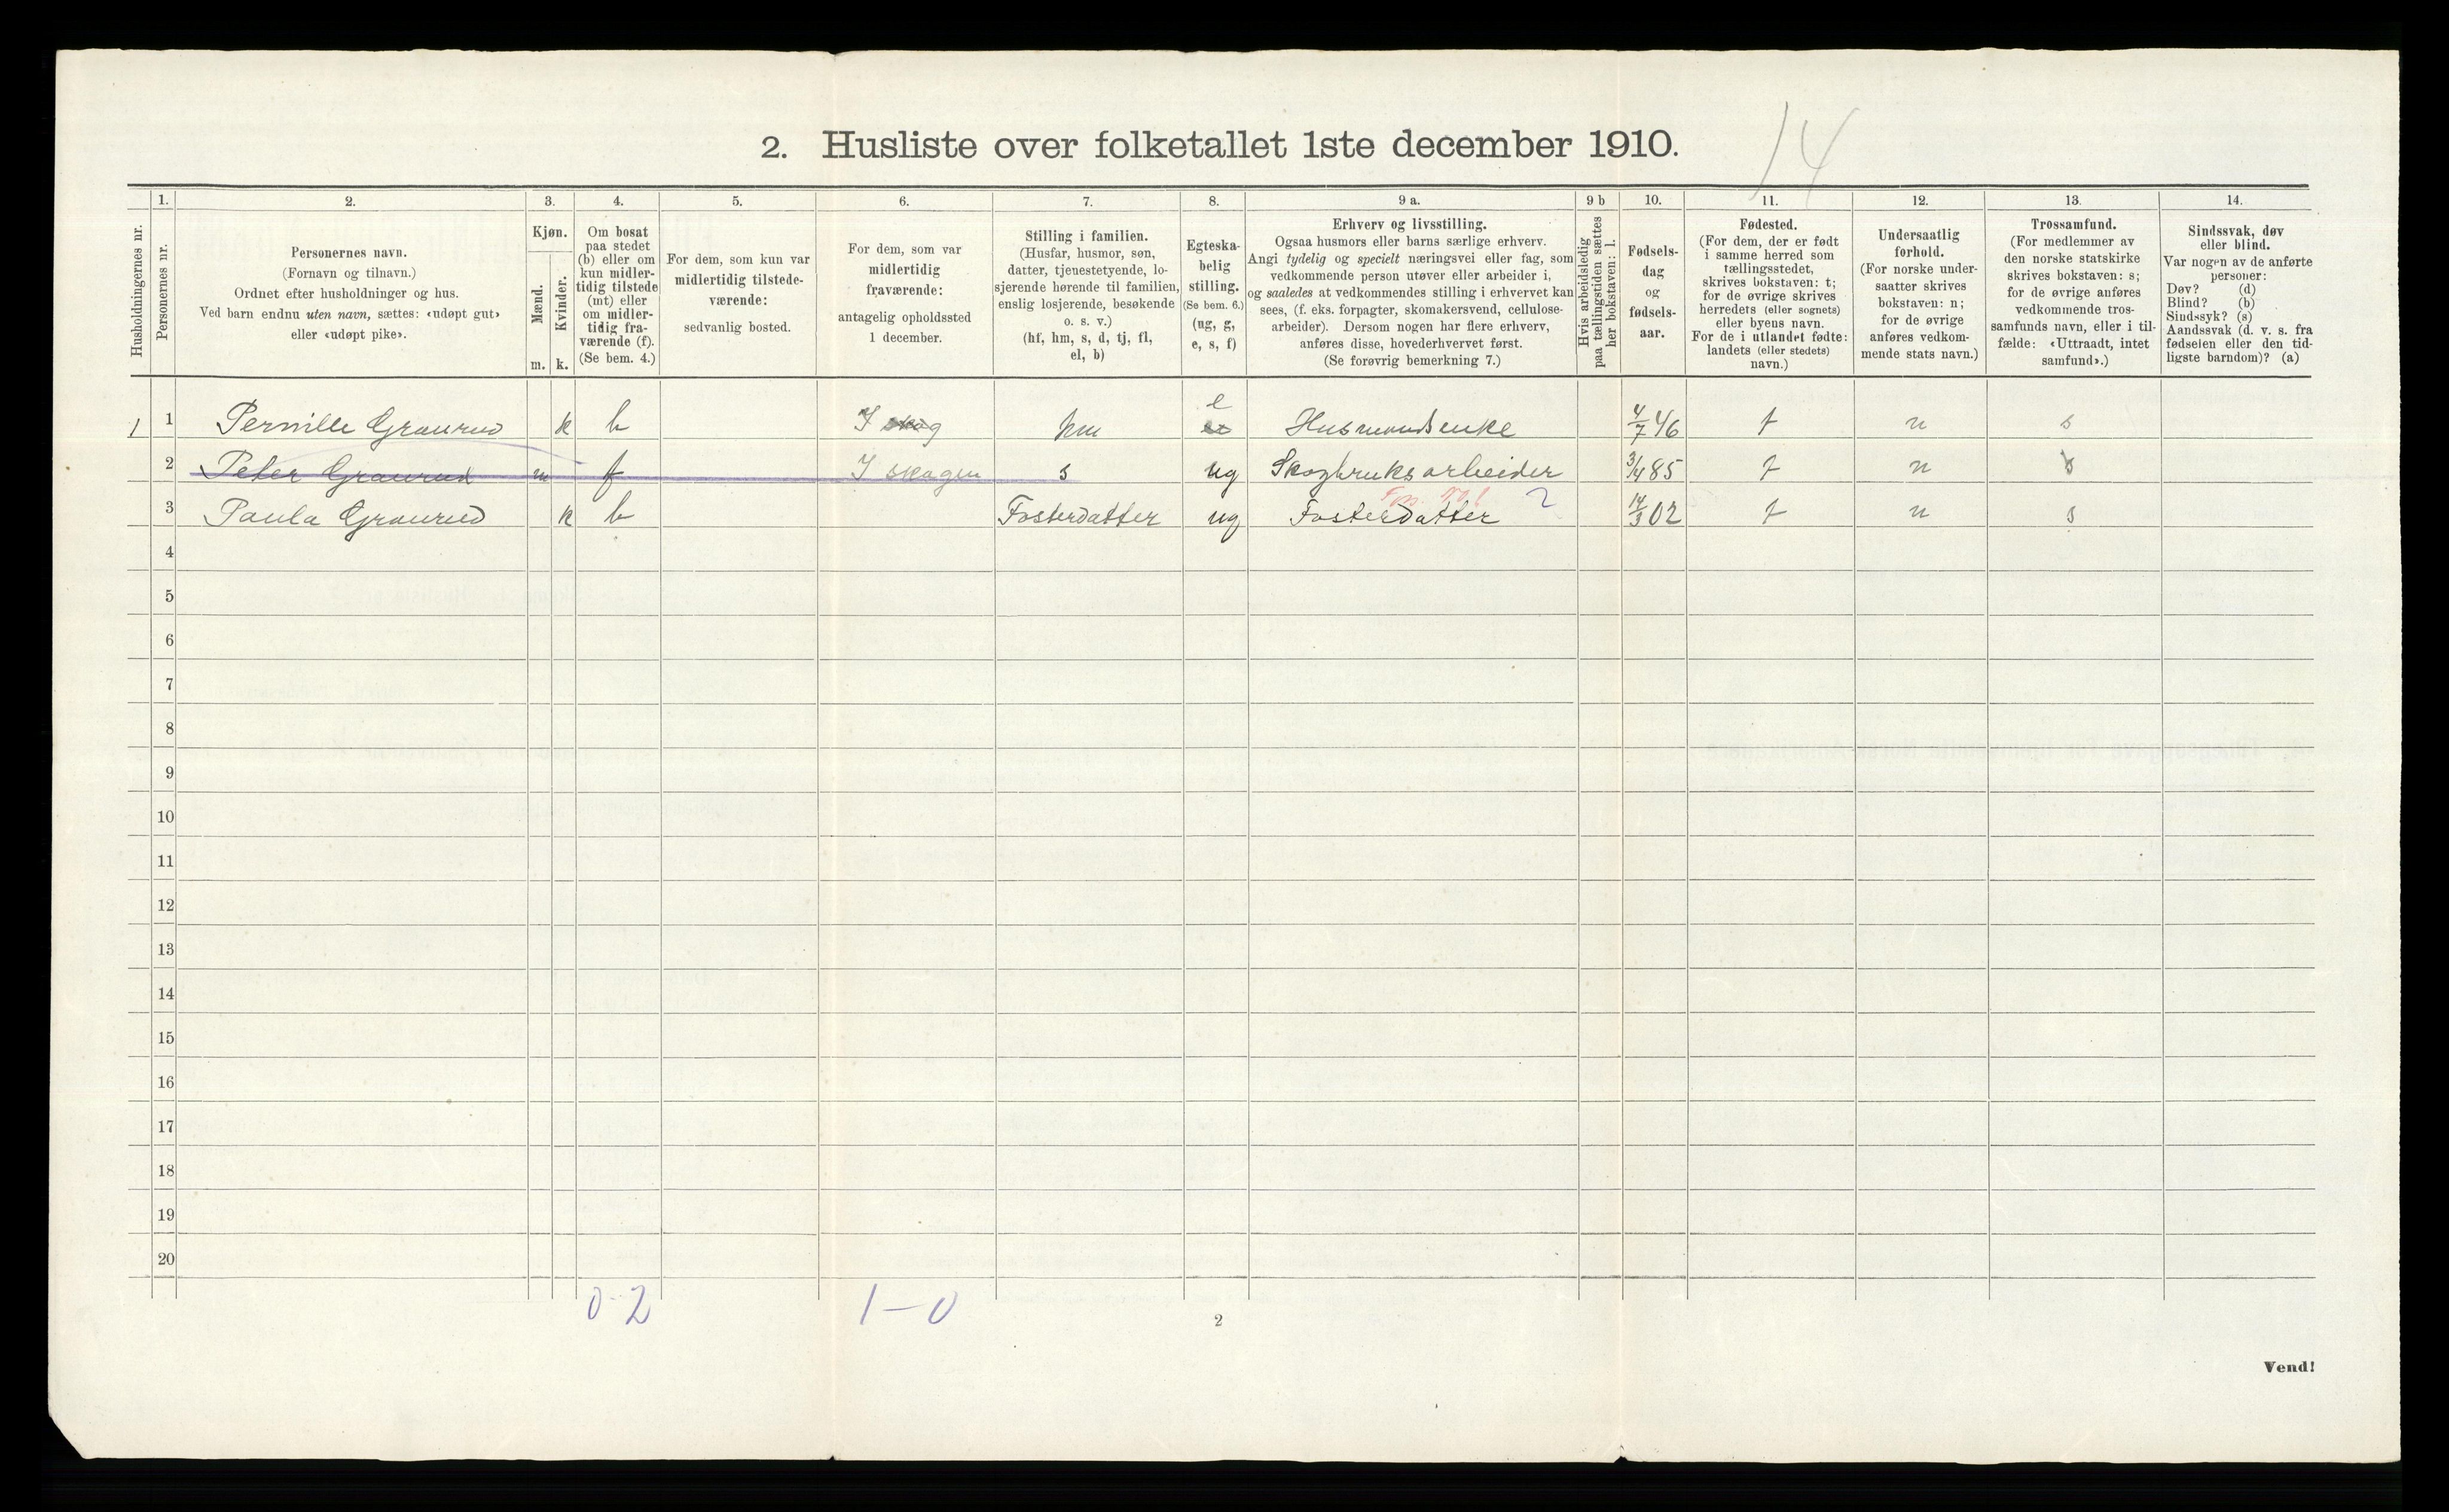 14
2. Husliste over folketallet 1ste december 1910.
Husholdningernes nr.
1.
Personernes nr.
2.
Personernes navn.
(Fornavn og tilnavn.)
Ordnet efter husholdninger og hus.
Ved barn endnu uten navn, sættes: «udøpt gut»
eller «udøpt pike».
3.
Kjøn.
Mænd.
m.
Kvinder.
k.
4.
Om bosat
paa stedet
(b) eller om
kun midler-
tidig tilstede
(mt) eller
om midler-
tidig fra-
værende (f).
(Se bem. 4.)
5.
For dem, som kun var
midlertidig tilstede-
værende:
sedvanlig bosted.
6.
For dem, som var
midlertidig
fraværende:
antagelig opholdssted
1 december.
7.
Stilling i familien.
(Husfar, husmor, søn,
datter, tjenestetyende, lo-
sjerende hørende til familien,
enslig losjerende, besøkende
o. s. v.)
(hf, hm, s, d, tj, fl,
el, b)
8.
Egteska-
belig
stilling.
(Se bem. 6.)
(ug, g,
e, s, f)
9 a.
Erhverv og livsstilling.
Ogsaa husmors eller barns særlige erhverv.
Angi tydelig og specielt næringsvei eller fag, som
vedkommende person utøver eller arbeider i,
og saaledes at vedkommendes stilling i erhvervet kan
sees, (f. eks. forpagter, skomakersvend, cellulose-
arbeider). Dersom nogen har flere erhverv,
anføres disse, hovederhvervet først.
(Se forøvrig bemerkning 7.)
9 b
Hvis arbeidsledig
paa tællingstiden sættes
her bokstaven: l.
10.
Fødsels-
dag
og
fødsels-
aar.
11.
Fødested.
(For dem, der er født
i samme herred som
tællingsstedet,
skrives bokstaven: t;
for de øvrige skrives
herredets (eller sognets)
eller byens navn.
For de i utlandet fødte:
landets (eller stedets)
navn.)
12.
Undersaatlig
forhold.
(For norske under-
saatter skrives
bokstaven: n;
for de øvrige
anføres vedkom-
mende stats navn.)
13.
Trossamfund.
(For medlemmer av
den norske statskirke
skrives bokstaven: s;
for de øvrige anføres
vedkommende tros-
samfunds navn, eller i til-
fælde: «Uttraadt, intet
samfund».)
14.
Sindssvak, døv
eller blind.
Var nogen av de anførte
personer:
Døv? (d)
Blind? (b)
Sindssyk? (s)
Aandssvak (d. v. s. fra
fødselen eller den tid-
ligste barndom)? (a)
1 1 Pernille Graurud k b I skog hm e Husmandsenke 4/7 46 t n s
2 Peter Graurud m f I skogen s ug Skogbruksarbeider 3/4 85 t n s
3 Paula Graurud k b Fosterdatter ug Fosterdatter 2 14/3 02 t n s
4
5
6
7
8
9
10
11
12
13
14
15
16
17
18
19
20
0-2 1-0
2
Vend!